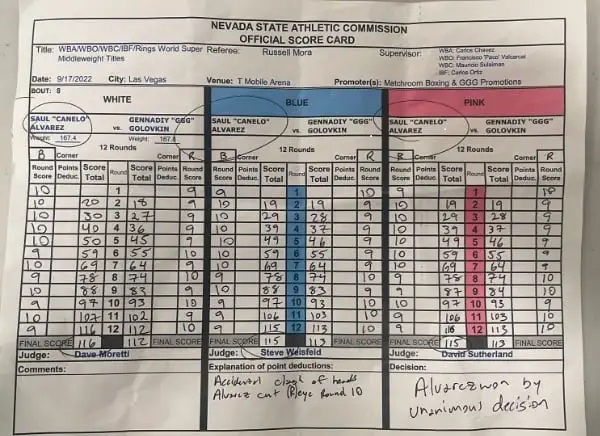 NEVADA STATE ATHLETIC COMMISSION
OFFICIAL SCORE CARD
Title: WBA/WBO/WBC/IBF/Rings World Super Middleweight Titles Referee: Russell Mora Supervisor: WBA: Carlos Chavez
WBO: Francisco 'Paco' Valcarcel
WBC: Mauricio Sulaiman
IBF: Carlos Ortiz
Date: 9/17/2022 City: Las Vegas Venue: T Mobile Arena Promoter(s): Matchroom Boxing & GGG Promotions
BOUT: 8
WHITE BLUE PINK
SAUL "CANELO" ALVAREZ vs. GENNADIY "GGG" GOLOVKIN SAUL "CANELO" ALVAREZ vs. GENNADIY "GGG" GOLOVKIN SAUL "CANELO" ALVAREZ vs. GENNADIY "GGG" GOLOVKIN
Weight: 167.4 Weight: 167.4
12 Rounds 12 Rounds 12 Rounds
B Corner Corner R B Corner Corner R B Corner Corner R
Round Score Points Deduc. Score Total Round Score Total Points Deduc. Round Score Round Score Points Deduc. Score Total Round Score Total Points Deduc. Round Score Round Score Points Deduc. Score Total Round Score Total Points Deduc. Round Score
10 1 9 9 1 10 9 1 10
10 20 2 18 9 10 19 2 19 9 10 19 2 19 9
10 30 3 27 9 10 29 3 28 9 10 29 3 28 9
10 40 4 36 9 10 39 4 37 9 10 39 4 37 9
10 50 5 45 9 10 49 5 46 9 10 49 5 46 9
9 59 6 55 10 10 59 6 55 9 10 59 6 55 9
10 69 7 64 9 10 69 7 64 9 10 69 7 64 9
9 78 8 74 10 9 78 8 74 10 9 78 8 74 10
10 88 9 83 9 10 88 9 83 9 9 87 9 84 10
9 97 10 93 10 9 97 10 93 10 10 97 10 93 9
10 107 11 102 9 9 106 11 103 10 9 106 11 103 10
9 116 12 112 10 9 115 12 113 10 9 12 113 10
FINAL SCORE 116 112 FINAL SCORE FINAL SCORE 115 113 FINAL SCORE FINAL SCORE 115 113 FINAL SCORE
Judge: Dave Moretti Judge: Steve Weisfeld Judge: David Sutherland
Comments: Explanation of point deductions: Decision:
Accidental clash of heads
Alvarez cut (R) eye Round 10
Alvarez won by
unanimous decision